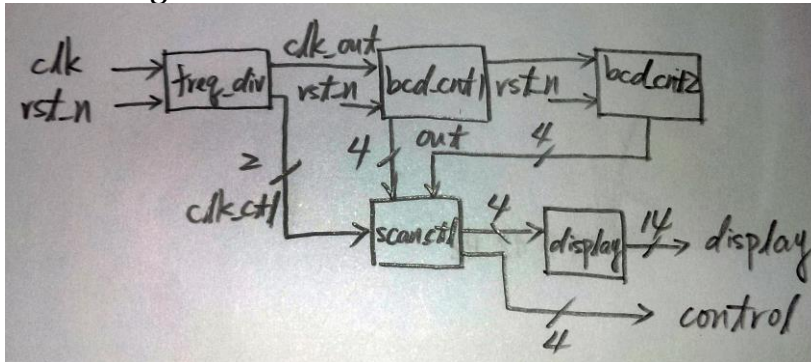 clk
rst_n
freq_div
clk_out
rst_n
bcd_cnt1
rst_n
bcd_cnt2
2
clk_ctl
4
out
4
scan_ctl
4
display
14
display
4
control